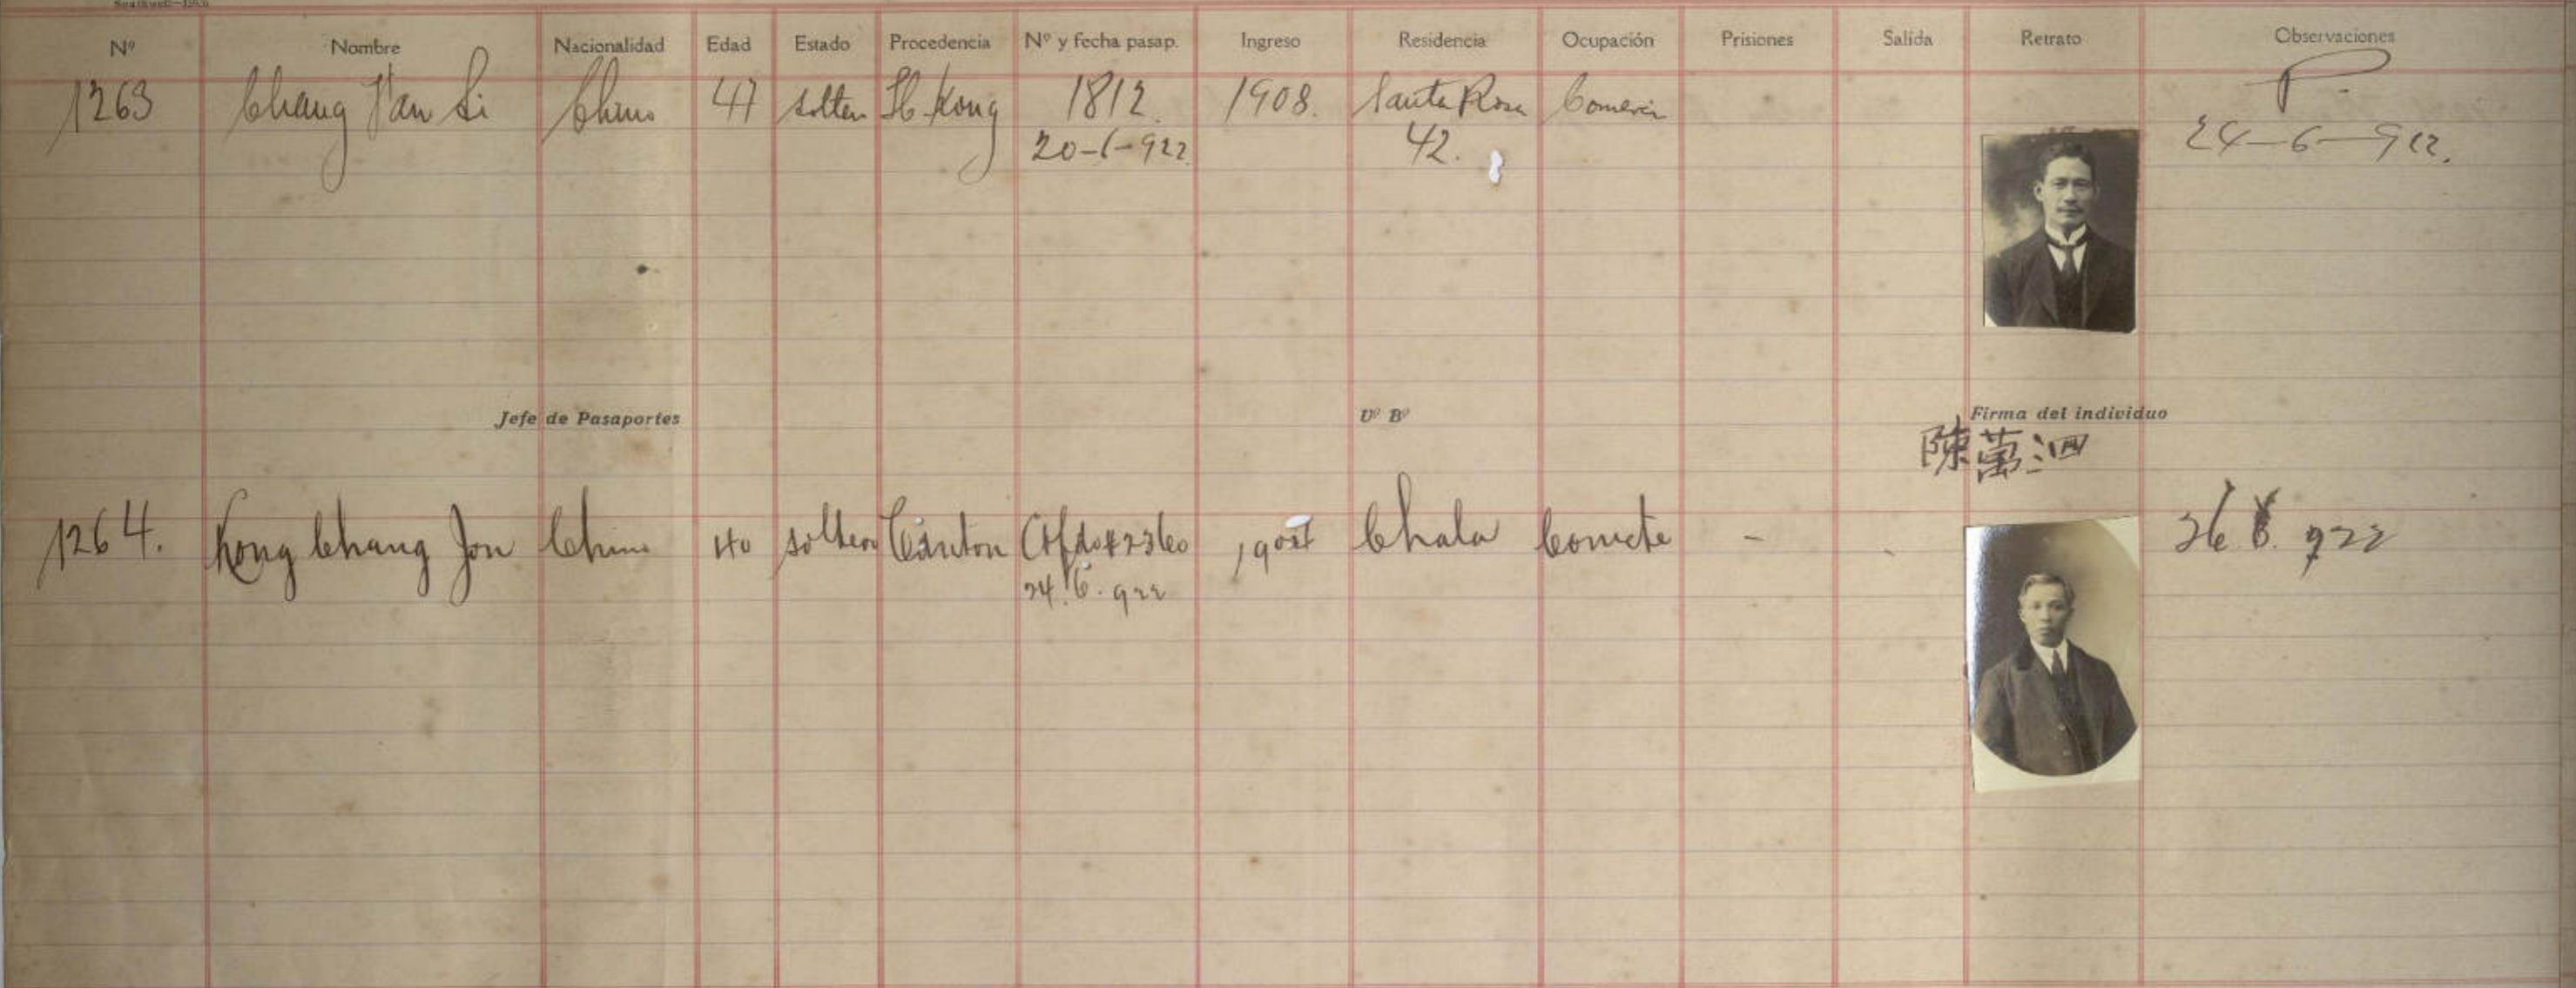 Nº Nombre Nacionalidad Edad Estado Procedencia Nº y fecha pasap. Ingreso Residencia Ocupación Prisiones Salida Retrato Observaciones
1263 Chang Wan Si Chino 47 soltero H. Kong 1812. 1908. Santa Rosa Comercio - P.
20-6-922. 42. 24-6-922.
Jefe de Pasaportes Vº Bº Firma del individuo
陳萬泗
1264. Kong Chang Jon Chino 40 soltero Canton Ctfdo # 2360 Chala Comcte - - 26 6. 922
24. 6. 922